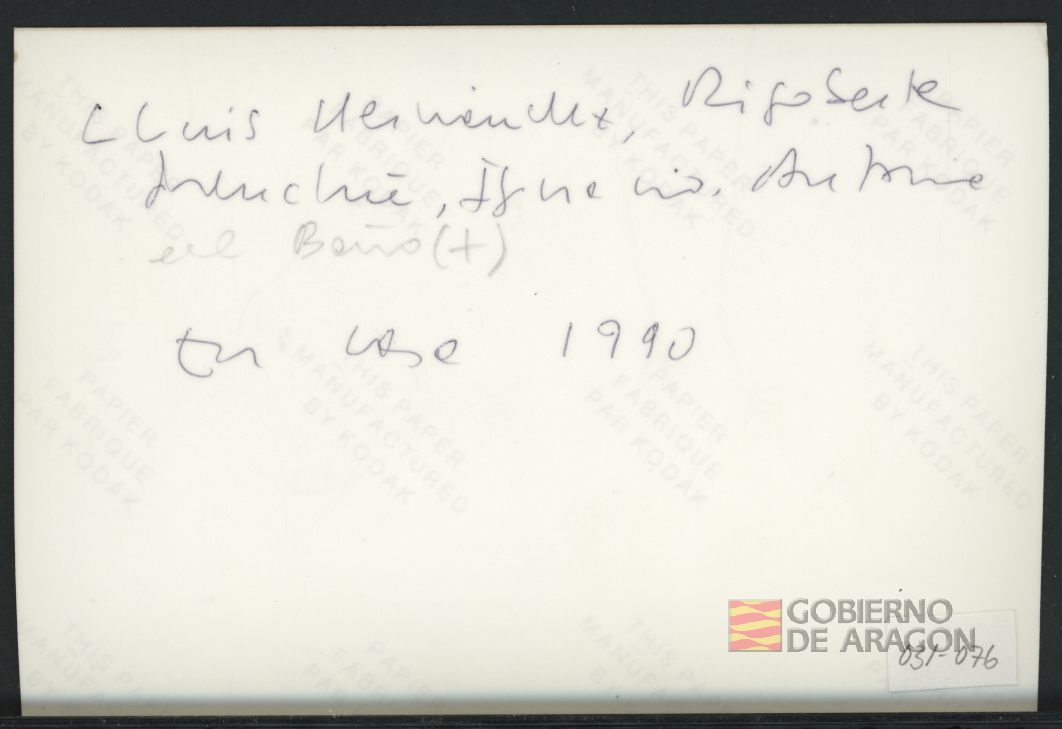 Lluis Hernández, Rigoberta
Menchú, Ignacio. Antonio
el Baño (+)
En casa 1990
THIS PAPER
MANUFACTURED
BY KODAK
PAPIER
FABRIQUE
PAR KODAK
GOBIERNO
DE ARAGON
031-076